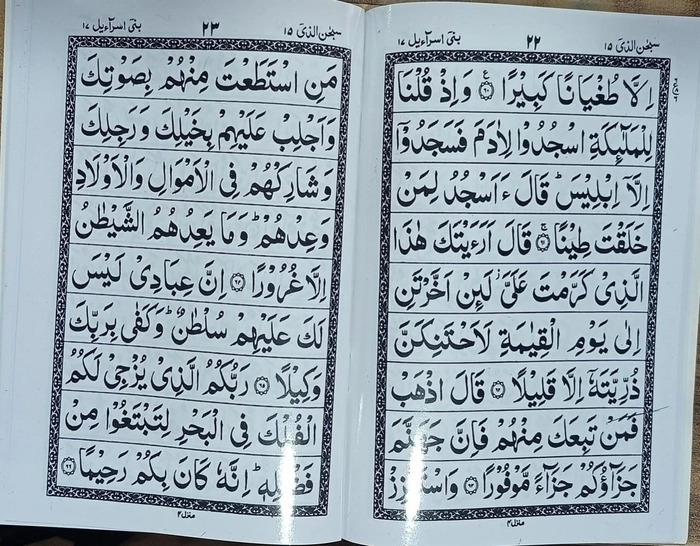 سبحٰن الذی ١۵
٢٢
بنی اسرآءیل ١٧
اِلَّا طُغْيَانًا كَبِيْرًا ۟ وَاِذْ قُلْنَا
لِلْمَلٰٓئِكَةِ اسْجُدُوْا لِاٰدَمَ فَسَجَدُوْٓا
اِلَّآ اِبْلِيْسَ ؕ قَالَ ءَاَسْجُدُ لِمَنْ
خَلَقْتَ طِيْنًا ۟ قَالَ اَرَءَيْتَكَ هٰذَا
الَّذِيْ كَرَّمْتَ عَلَيَّ ؗ لَئِنْ اَخَّرْتَنِ
اِلٰى يَوْمِ الْقِيٰمَةِ لَاَحْتَنِكَنَّ
ذُرِّيَّتَهٗٓ اِلَّا قَلِيْلًا ۟ قَالَ اذْهَبْ
فَمَنْ تَبِعَكَ مِنْهُمْ فَاِنَّ جَهَنَّمَ
جَزَآؤُكُمْ جَزَآءً مَّوْفُوْرًا ۟ وَاسْتَفْزِزْ
منزل ۴
سبحٰن الذی ١۵
٢٣
بنی اسرآءیل ١٧
مَنِ اسْتَطَعْتَ مِنْهُمْ بِصَوْتِكَ
وَاَجْلِبْ عَلَيْهِمْ بِخَيْلِكَ وَرَجِلِكَ
وَشَارِكْهُمْ فِي الْاَمْوَالِ وَالْاَوْلَادِ
وَعِدْهُمْ ؕ وَمَا يَعِدُهُمُ الشَّيْطٰنُ
اِلَّا غُرُوْرًا ۟ اِنَّ عِبَادِيْ لَيْسَ
لَكَ عَلَيْهِمْ سُلْطٰنٌ ؕ وَكَفٰى بِرَبِّكَ
وَكِيْلًا ۟ رَبُّكُمُ الَّذِيْ يُزْجِيْ لَكُمُ
الْفُلْكَ فِي الْبَحْرِ لِتَبْتَغُوْا مِنْ
فَضْلِهٖ ؕ اِنَّهٗ كَانَ بِكُمْ رَحِيْمًا ۟
منزل ۴